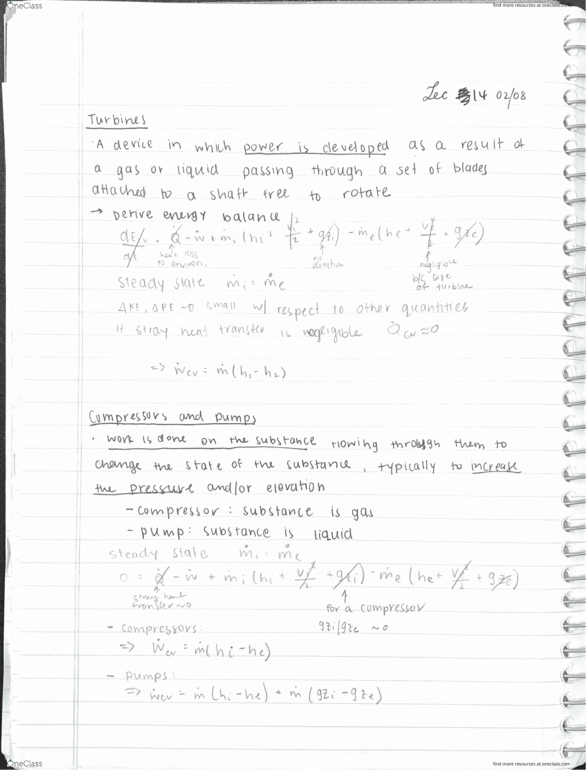 OneClass
find more resources at oneclass.com
Lec #14 02/08
Turbines
· A device in which power is developed as a result of
a gas or liquid passing through a set of blades
attached to a shaft free to rotate
→ Derive energy balance
dE/dt = Q̇ - ẇ + ṁi (hi + Vi²/2 + gzi) - ṁe (he + Ve²/2 + gze)
heat loss to environ.
no elevation
negligible b/c size of turbine
steady state ṁi = ṁe
ΔKE, ΔPE → small w/ respect to other quantities
If stray heat transfer is negligible Q̇cv ≈ 0
=> ẇcv = ṁ(h1 - h2)
Compressors and pumps
· work is done on the substance flowing through them to
change the state of the substance, typically to increase
the pressure and/or elevation
- compressor: substance is gas
- pump: substance is liquid
steady state ṁi = ṁe
0 = Q̇ - ẇ + ṁi (hi + Vi²/2 + gzi) - ṁe (he + Ve²/2 + gze)
stray heat transfer ~0
for a compressor
gzi/gze ~0
- compressors:
=> Ẇcv = ṁ(hi - he)
- pumps:
=> ẇcv = ṁ (hi - he) + ṁ (gzi - gze)
OneClass
find more resources at oneclass.com